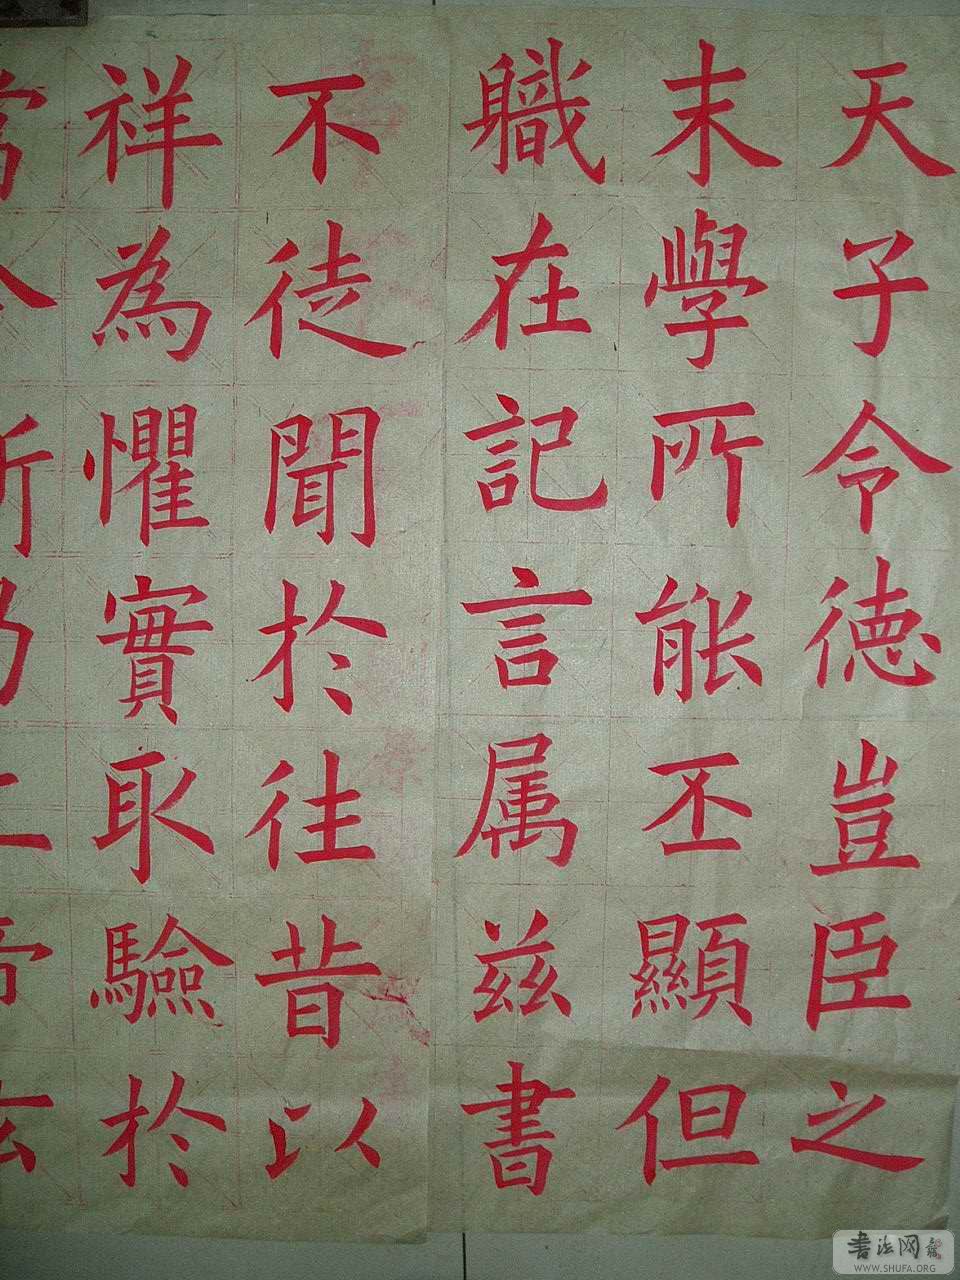 天子令德豈臣之
末學所能丕顯但
職在記言属兹書
不徒聞於往昔以
祥為懼實取驗於
當今斯乃上帝玄
書法网
WWW.SHUFA.ORG